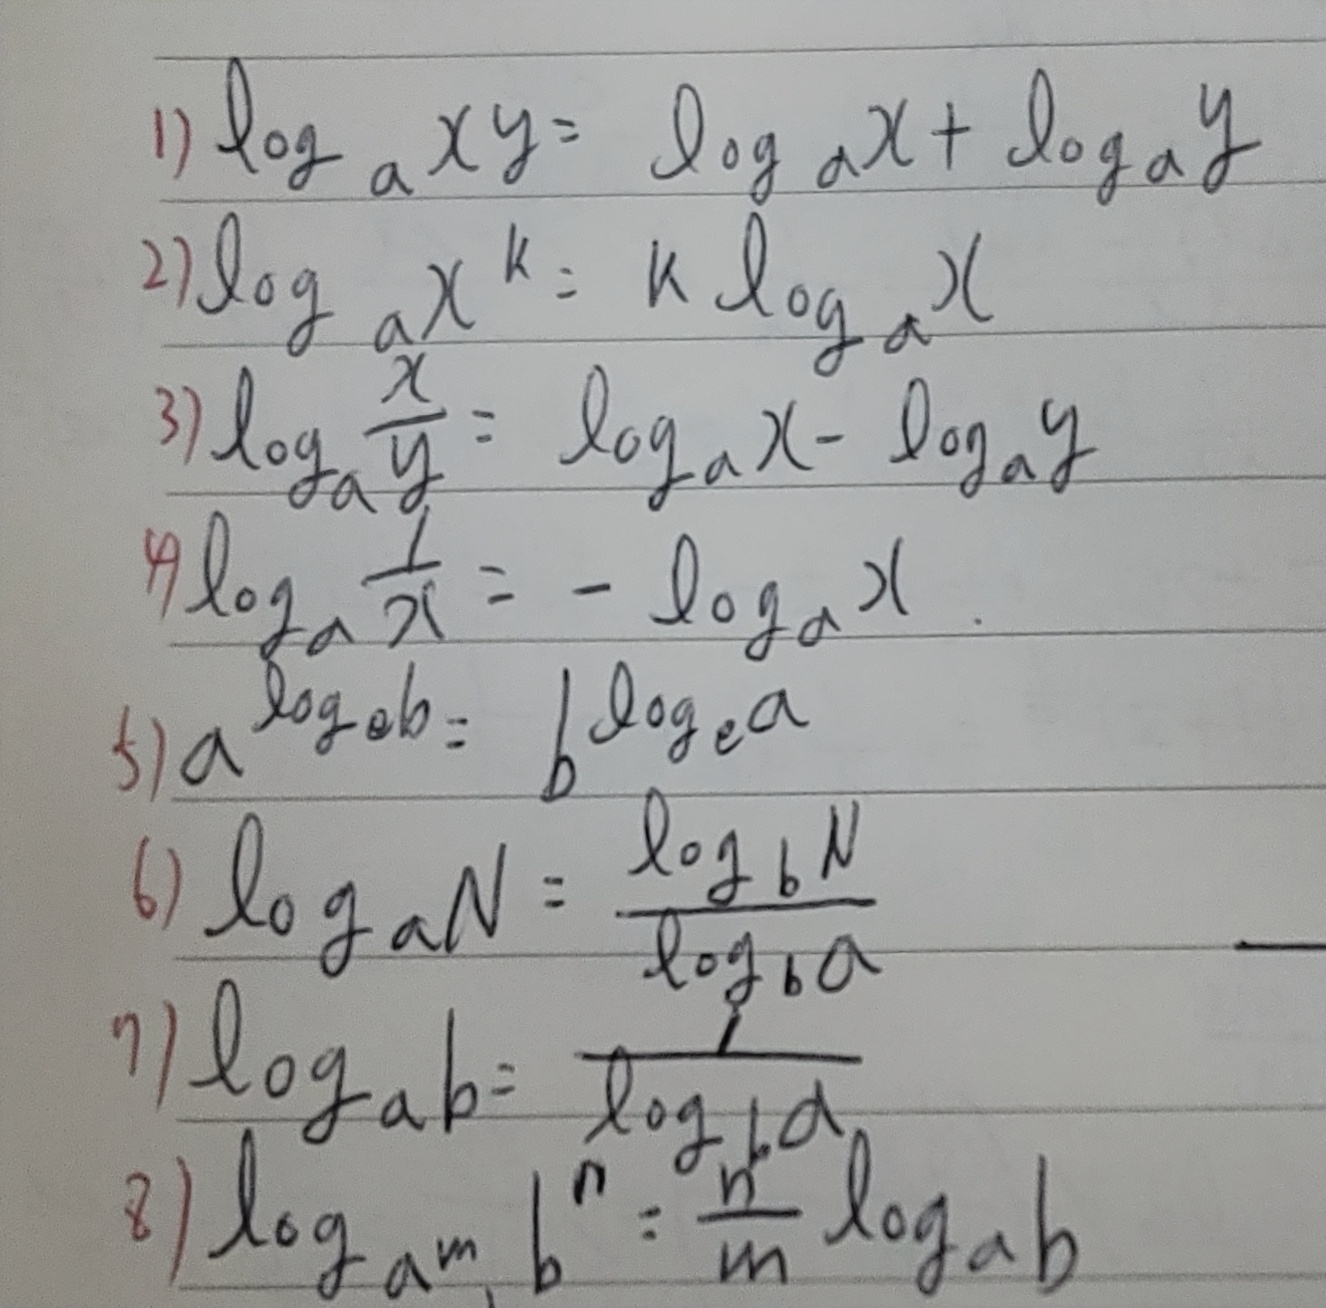 1) log_a xy = log_a x + log_a y
2) log_a x^k = k log_a x
3) log_a x/y = log_a x - log_a y
4) log_a 1/x = - log_a x.
5) a^(log_e b) = b^(log_e a)
6) log_a N = log_b N / log_b a
7) log_a b = 1 / log_b a
8) log_(a^m) b^n = n/m log_a b